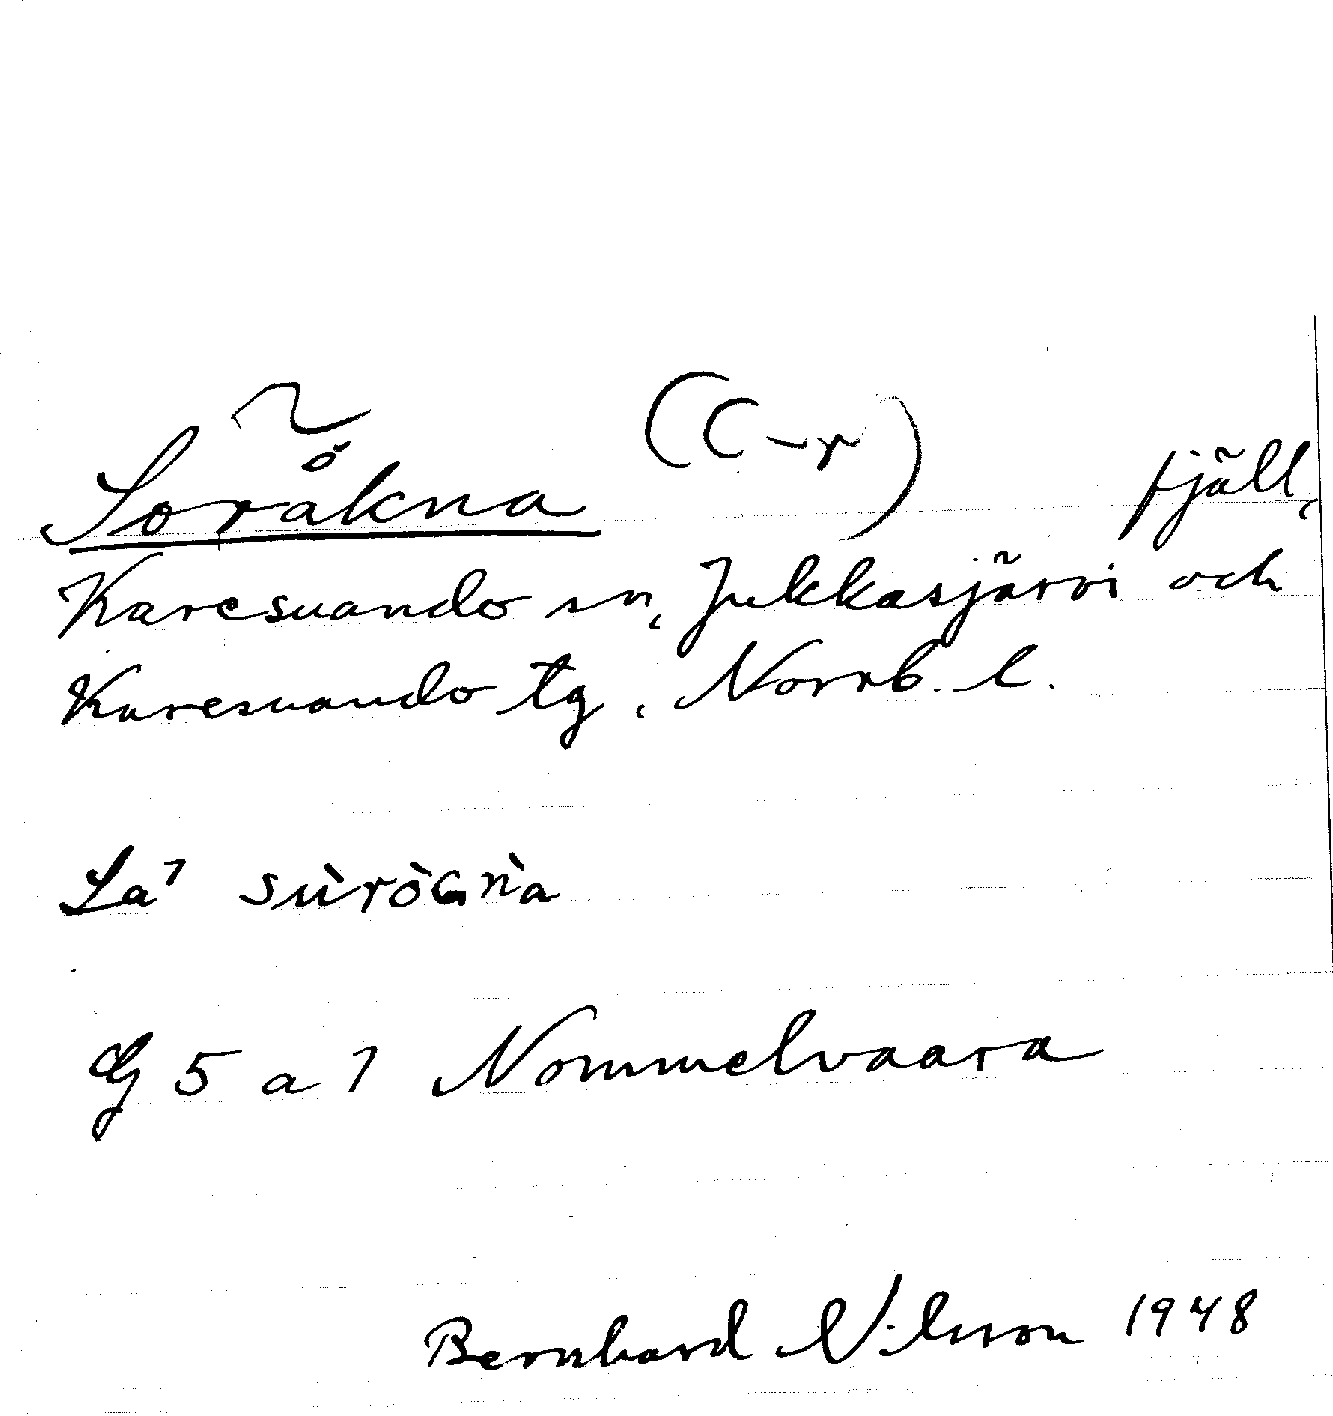 Soråkna (C-r) fjäll,
Karesuando sn, Jukkasjärvi och
Karesuando tg, Norrb. l.
La⁊ sùròGǹa
G 5 a 1 Nommelvaara
Bernhard Nilsson 1948